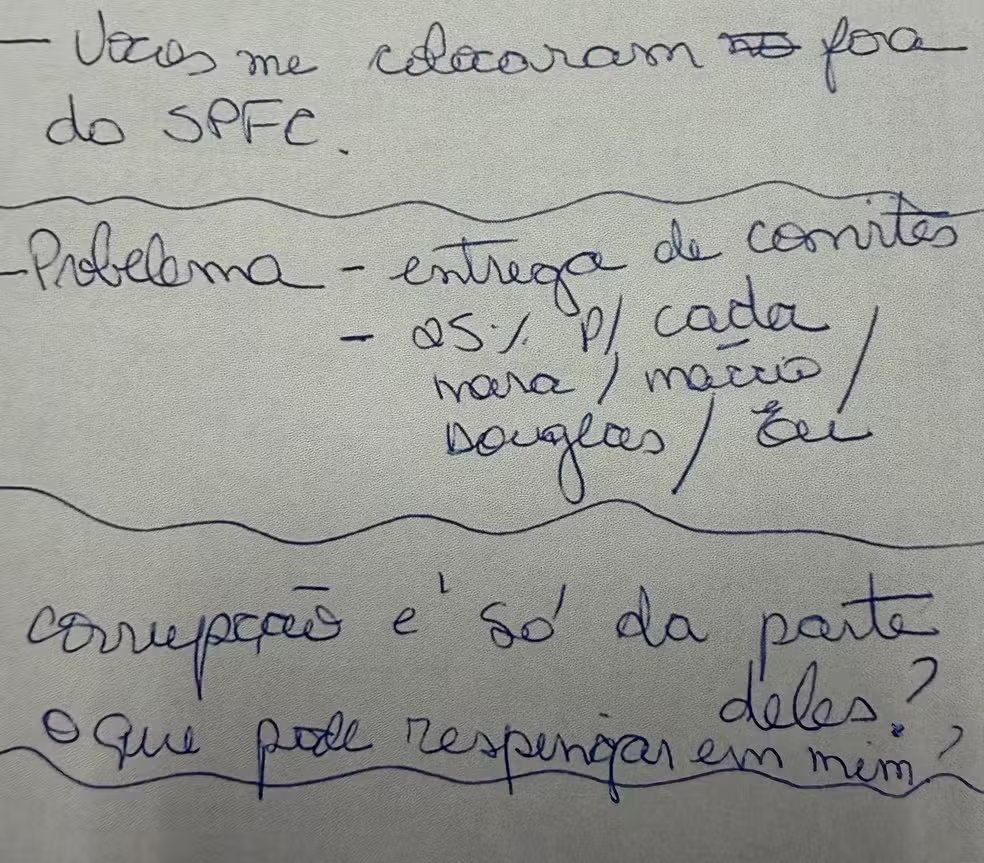 - Voces me colocaram fora
do SPFC.
- Probelema - entrega de convites
- 25% p/ cada
mara / márcio /
Douglas / Eu
corrupção é só da parte
deles?
o que pode respingar em mim?